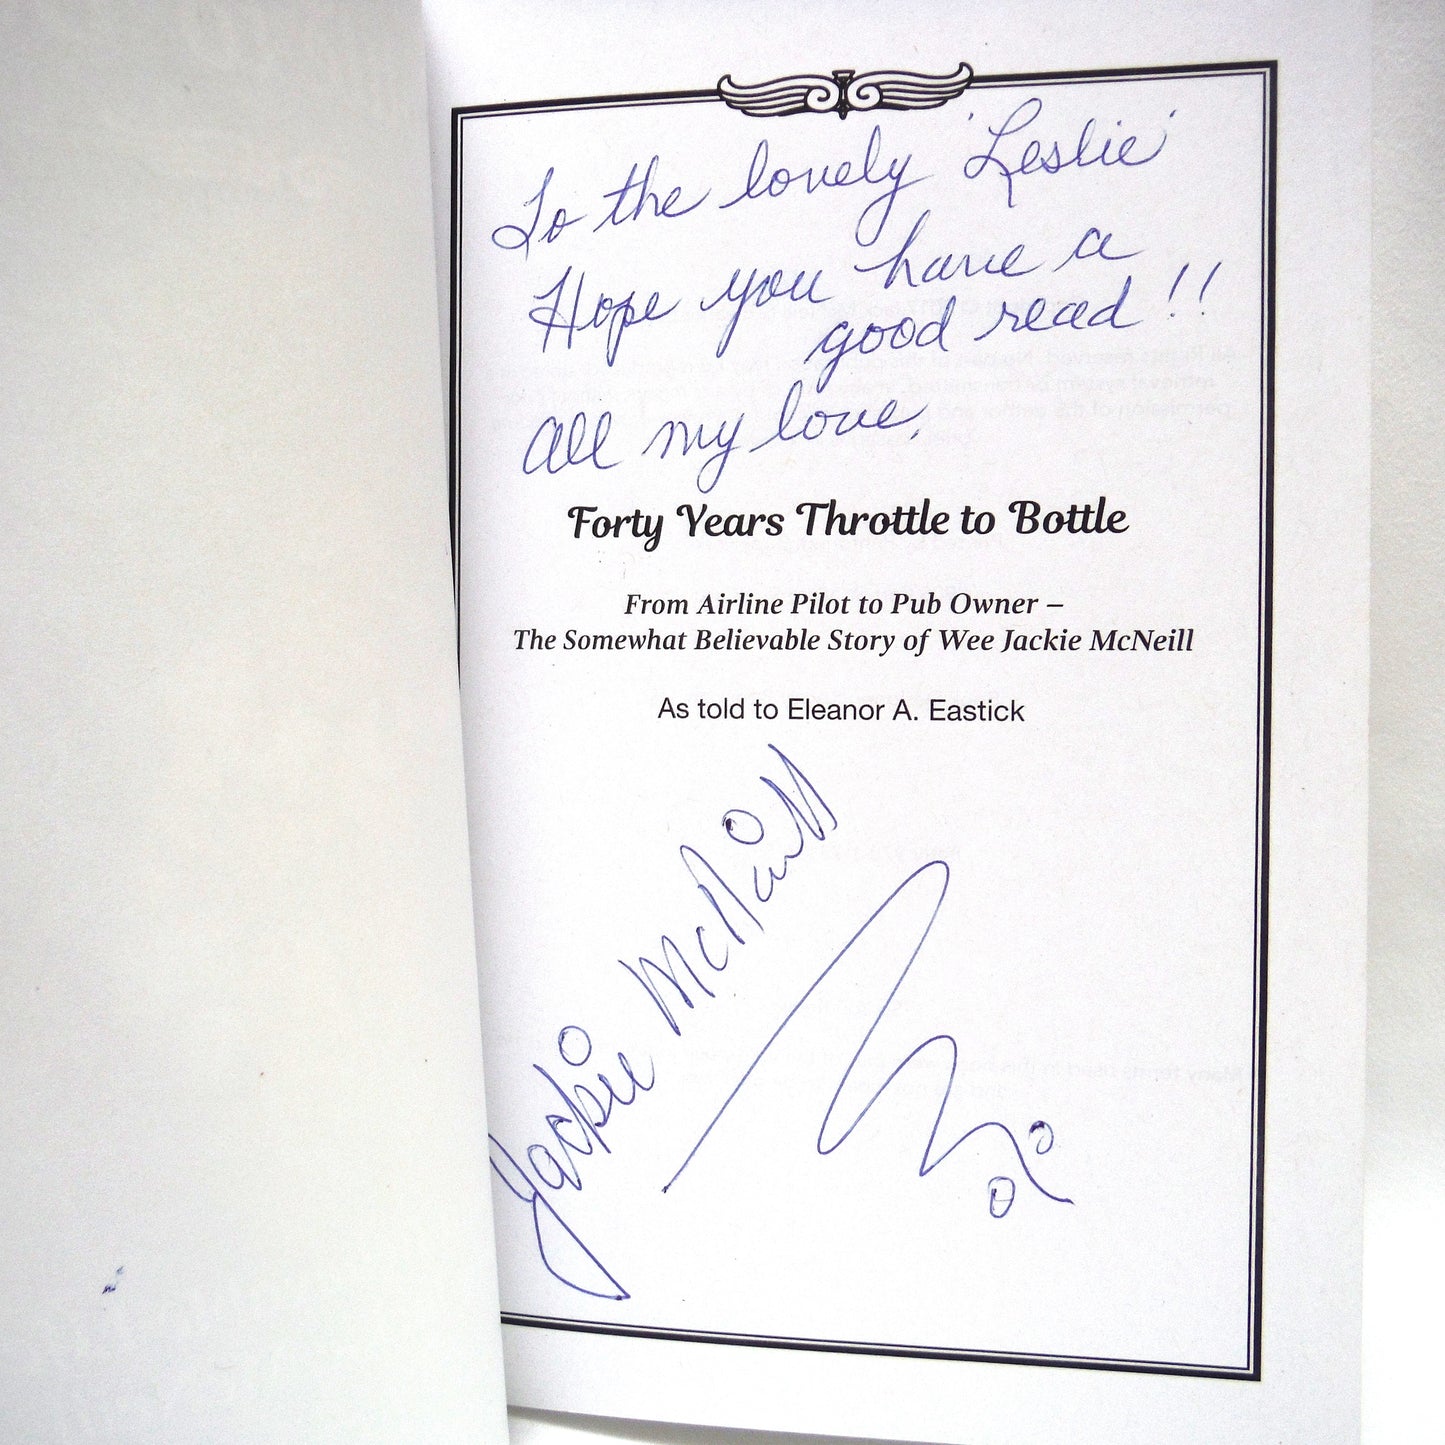 To the lovely 'Leslie'
Hope you have a
good read!!
All my love,
Forty Years Throttle to Bottle
From Airline Pilot to Pub Owner –
The Somewhat Believable Story of Wee Jackie McNeill
As told to Eleanor A. Eastick
Jackie McNeill